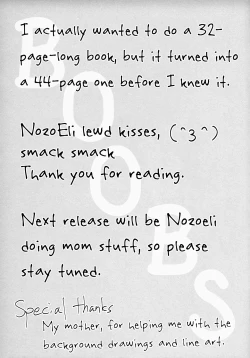 I actually wanted to do a 32-
page-long book, but it turned into
a 44-page one before I knew it.
NozoEli lewd kisses, (^3^)
smack smack
Thank you for reading.
Next release will be Nozoeli
doing mom stuff, so please
stay tuned.
Special thanks
My mother, for helping me with the
background drawings and line art.
BOOBS